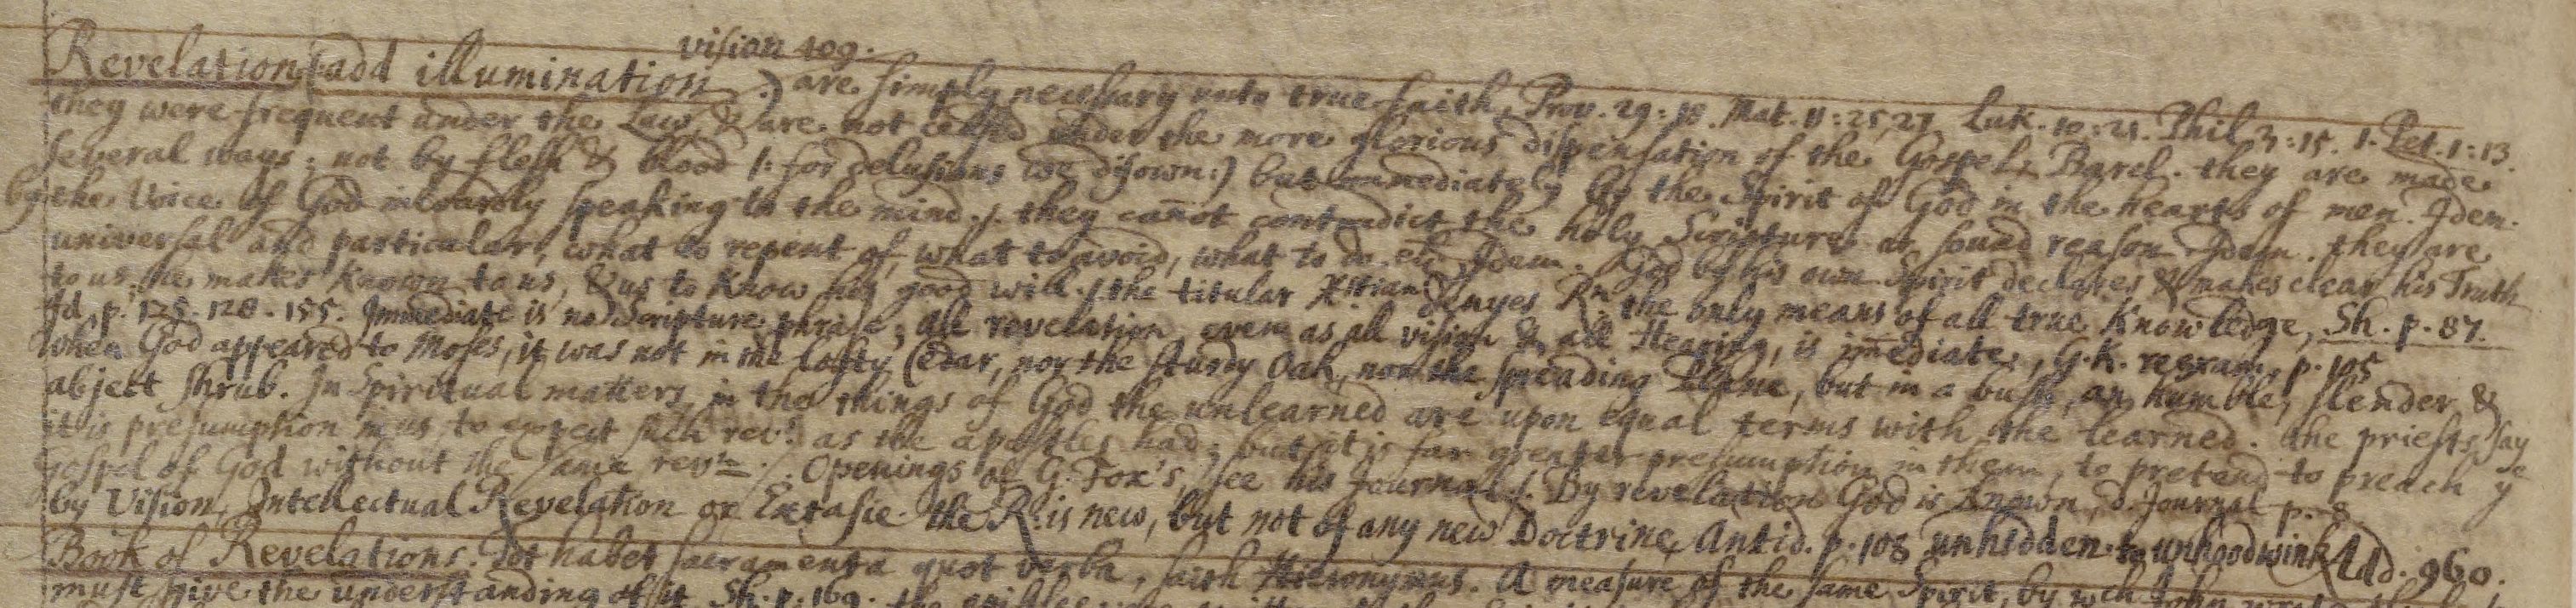 vision 109.
Revelation (add illumination.) are simply necessary unto true faith, Prov. 29:18. Mat. 11:25,27 Luk. 10:21. Phil 3:15. 1. Pet. 1:13.
they were frequent under the Law, & are not ceased under the more glorious dispensation of the Gospel, Barcl. they are made
several ways; not by flesh & blood /: for delusions we disown:) but immediately by the Spirit of God in the hearts of men. Idem.
by the Voice of God inwardly speaking to the mind./. they cañot contradict the holy Scripture or sound reason Idem. they are
universal and particular, what to repent of, what to avoid, what to do etc. Idem. God by his own Spirit declares & makes clear his Truth
to us, he makes known to us, & us to know his good will./. the titular Xstian denyes Rn. the only means of all true Knowledge, Sh. p. 87.
Id. p. 125. 128. 155. Immediate is no Scripture phrase; all revelation, even as all vision & all Hearing, is im̄ediate, G.K. regram. p. 105
When God appeared to Moses, it was not in the lofty Cedar, nor the sturdy Oak, nor the spreading Plane, but in a bush, an humble, slender &
abject shrub. In Spiritual matters, in the things of God the unlearned are upon equal terms with the learned. the priests say
it is presumption in us, to expect such revn. as the apostles had; but it is far greater presumption in them, to pretend to preach ye
Gospel of God without the same revn./. Openings of G. Fox's, see his Journal /. By revelation God is known, d. Journal p. 8
by Vision, Intellectual Revelation or Extasie. the R. is new, but not of any new Doctrine, Antid. p. 108 unhidden to unhoodwink Add. 960.
Book of Revelations. Tot habet sacramenta quot verba, saith Hieronymus. A measure of the same Spirit, by wch John
must give the understanding of it Sh. p. 169. the